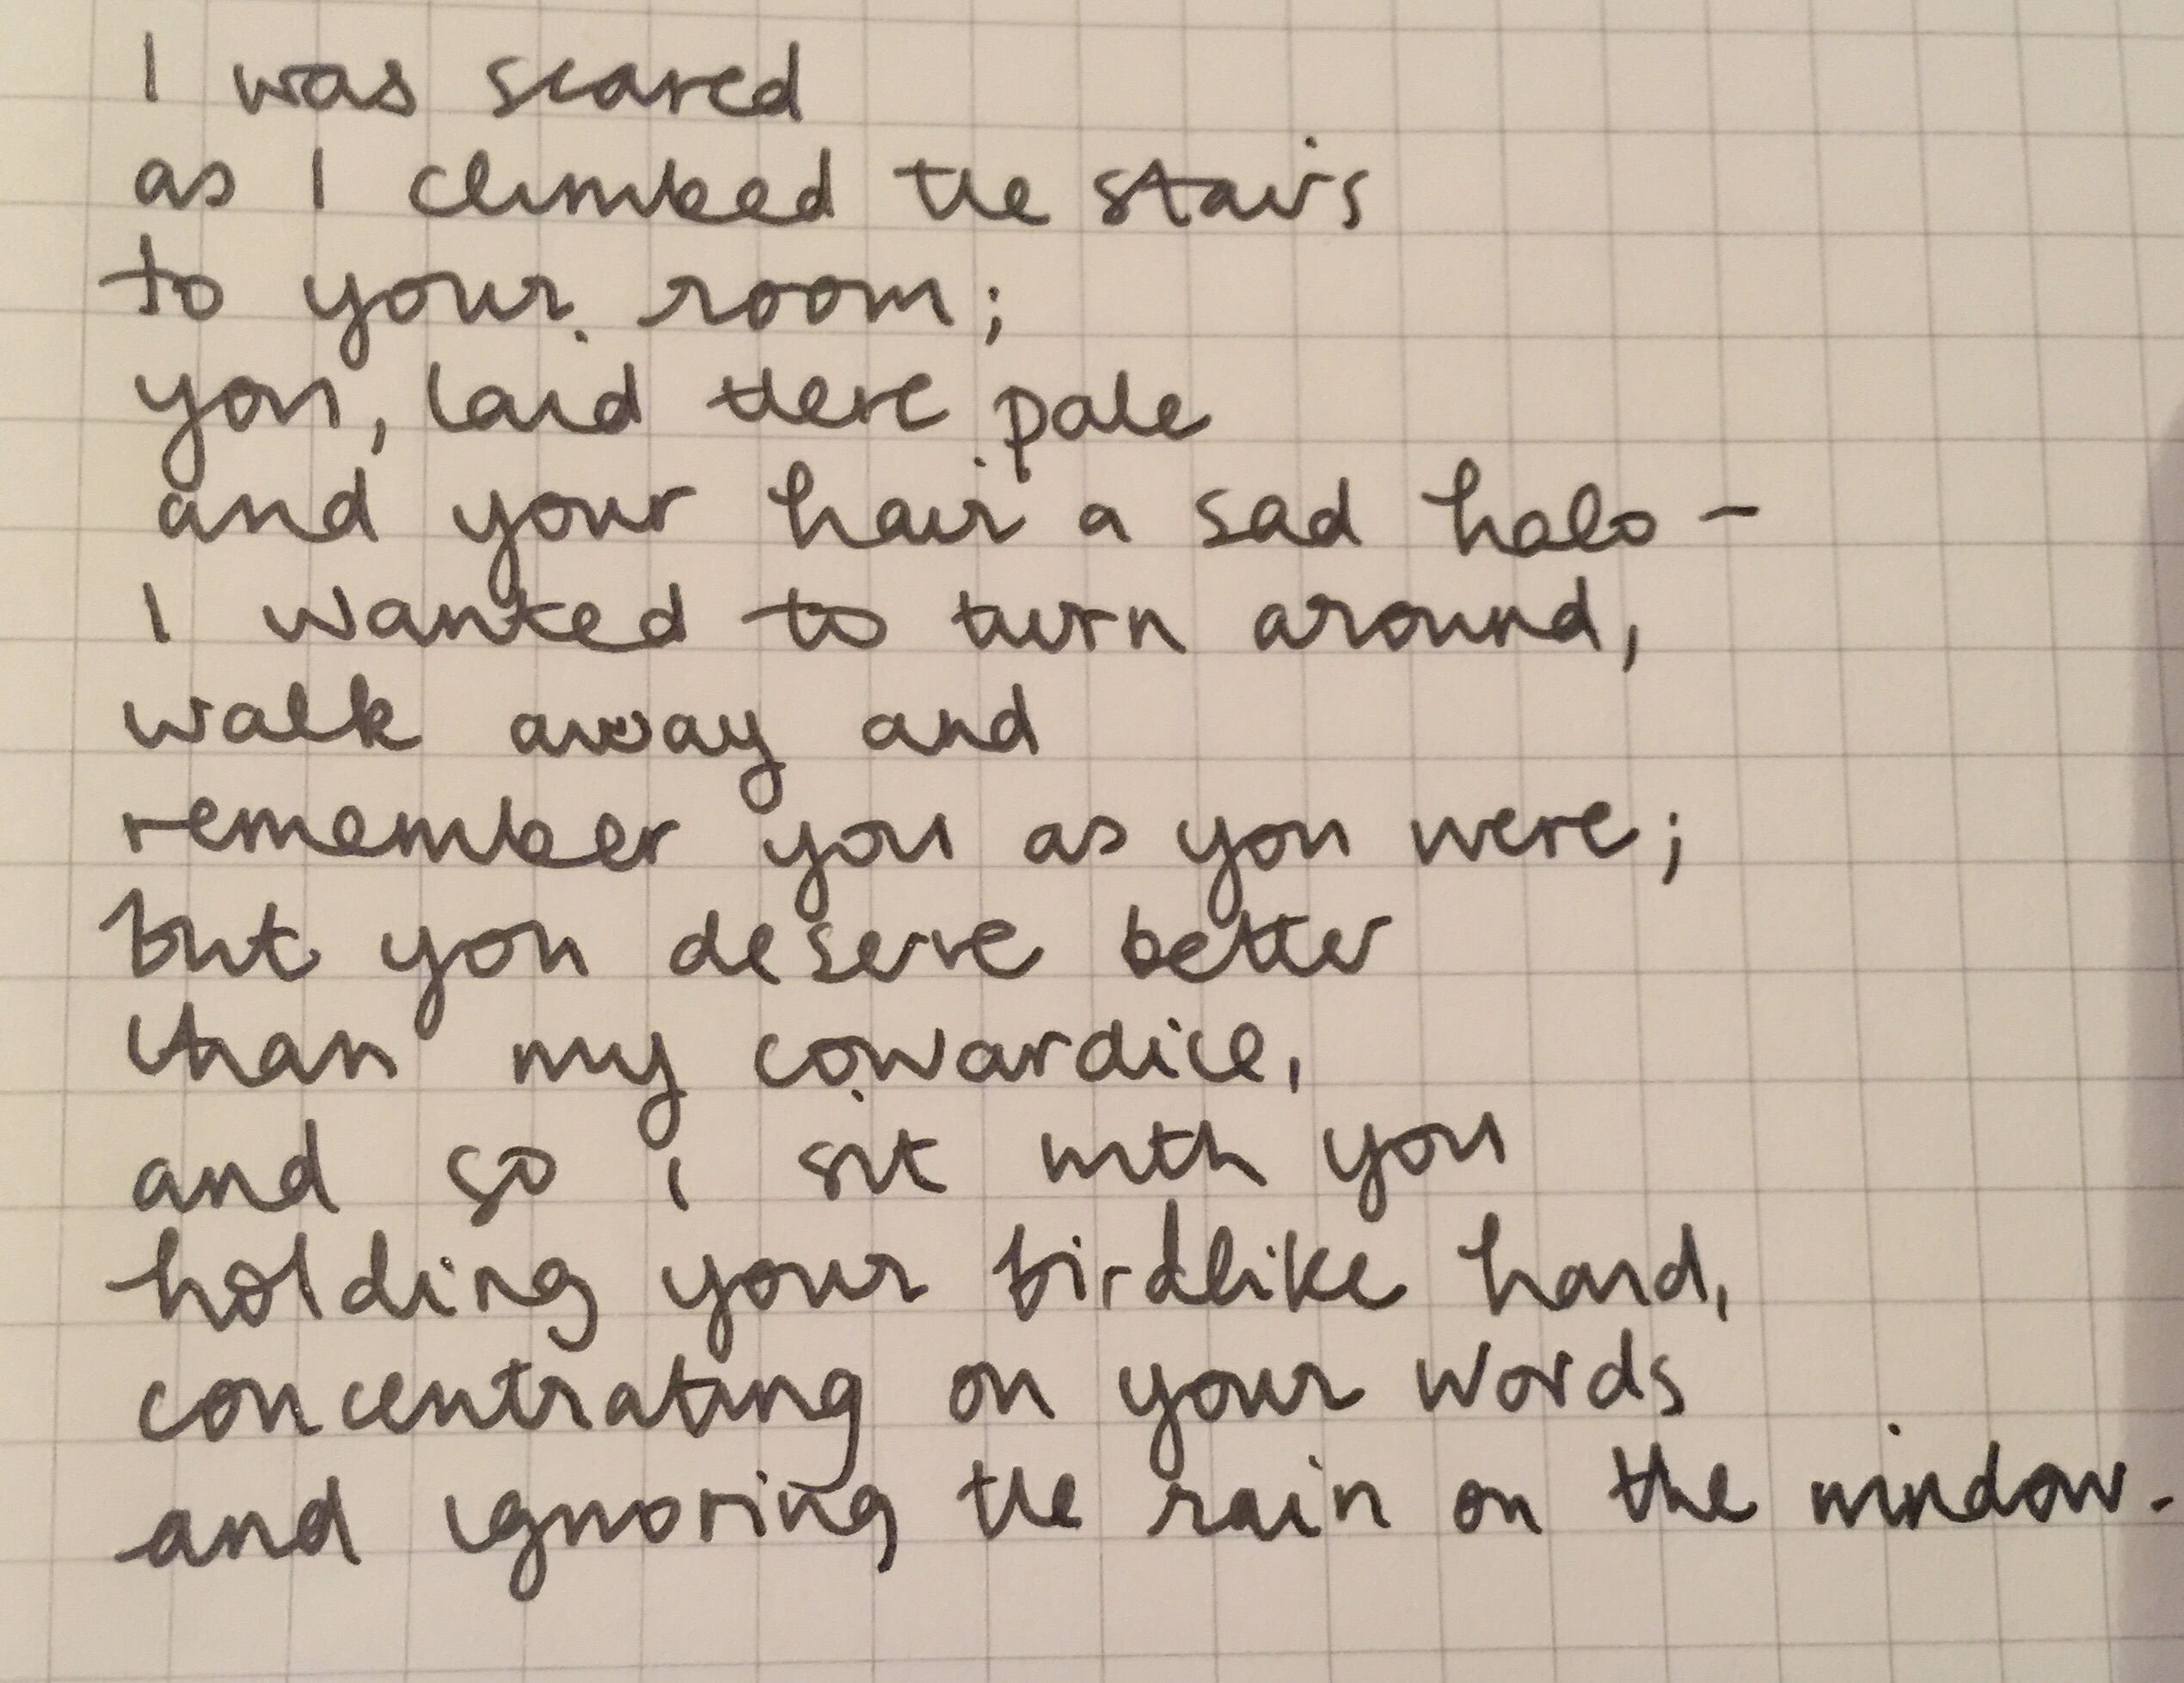 I was scared
as I climbed the stairs
to your room;
you, laid there pale
and your hair a sad halo –
I wanted to turn around,
walk away and
remember you as you were;
but you deserve better
than my cowardice,
and so i sit with you
holding your birdlike hand,
concentrating on your words
and ignoring the rain on the window.